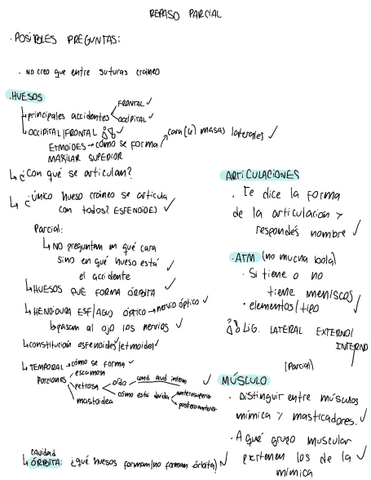 REPASO PARCIAL
· POSIBLES PREGUNTAS:
· NO CREO QUE ENTRE SUTURAS CRÁNEO
· HUESOS
↳ principales accidentes
FRONTAL ✓
OCCIPITAL ✓
↳ OCCIPITAL/FRONTAL
ETMOIDES → cómo se forma
cara (6) MASAS laterales) ✓
MAXILAR SUPERIOR
↳ ¿Con qué se articulan?
↳ ¿único hueso cráneo se articula
con todos? ESFENOIDES ✓
Parcial:
↳ NO preguntan en qué cara
sino en qué hueso está
el accidente ✓
↳ HUESOS QUE FORMA ÓRBITA ✓
↳ HENDIDURA ESF/AGU ÓPTICO → nervio óptico ✓
↳ pasan al ojo los nervios ✓
↳ constitución esfenoides/etmoides ✓
↳ TEMPORAL → cómo se forma ✓
PORCIONES
escamosa
petrosa
mastoidea
cond. aud interno ✓
cómo está dividida
anterosuperior
posteroinferior
cavidad
↳ ÓRBITA: ¿qué huesos forman/no forman órbita? ✓
ARTICULACIONES
· Te dice la forma
de la articulación y
respondés nombre ✓
· ATM (no mueva bola)
· Si tiene o no
tiene meniscos ✓
· elementos/tipo
LIG. LATERAL EXTERNO/
INTERNO
(Parcial)
MÚSCULO
· Distinguir entre músculos
mímica y masticadores. ✓
· A qué grupo muscular
pertenen los de la
mímica ✓